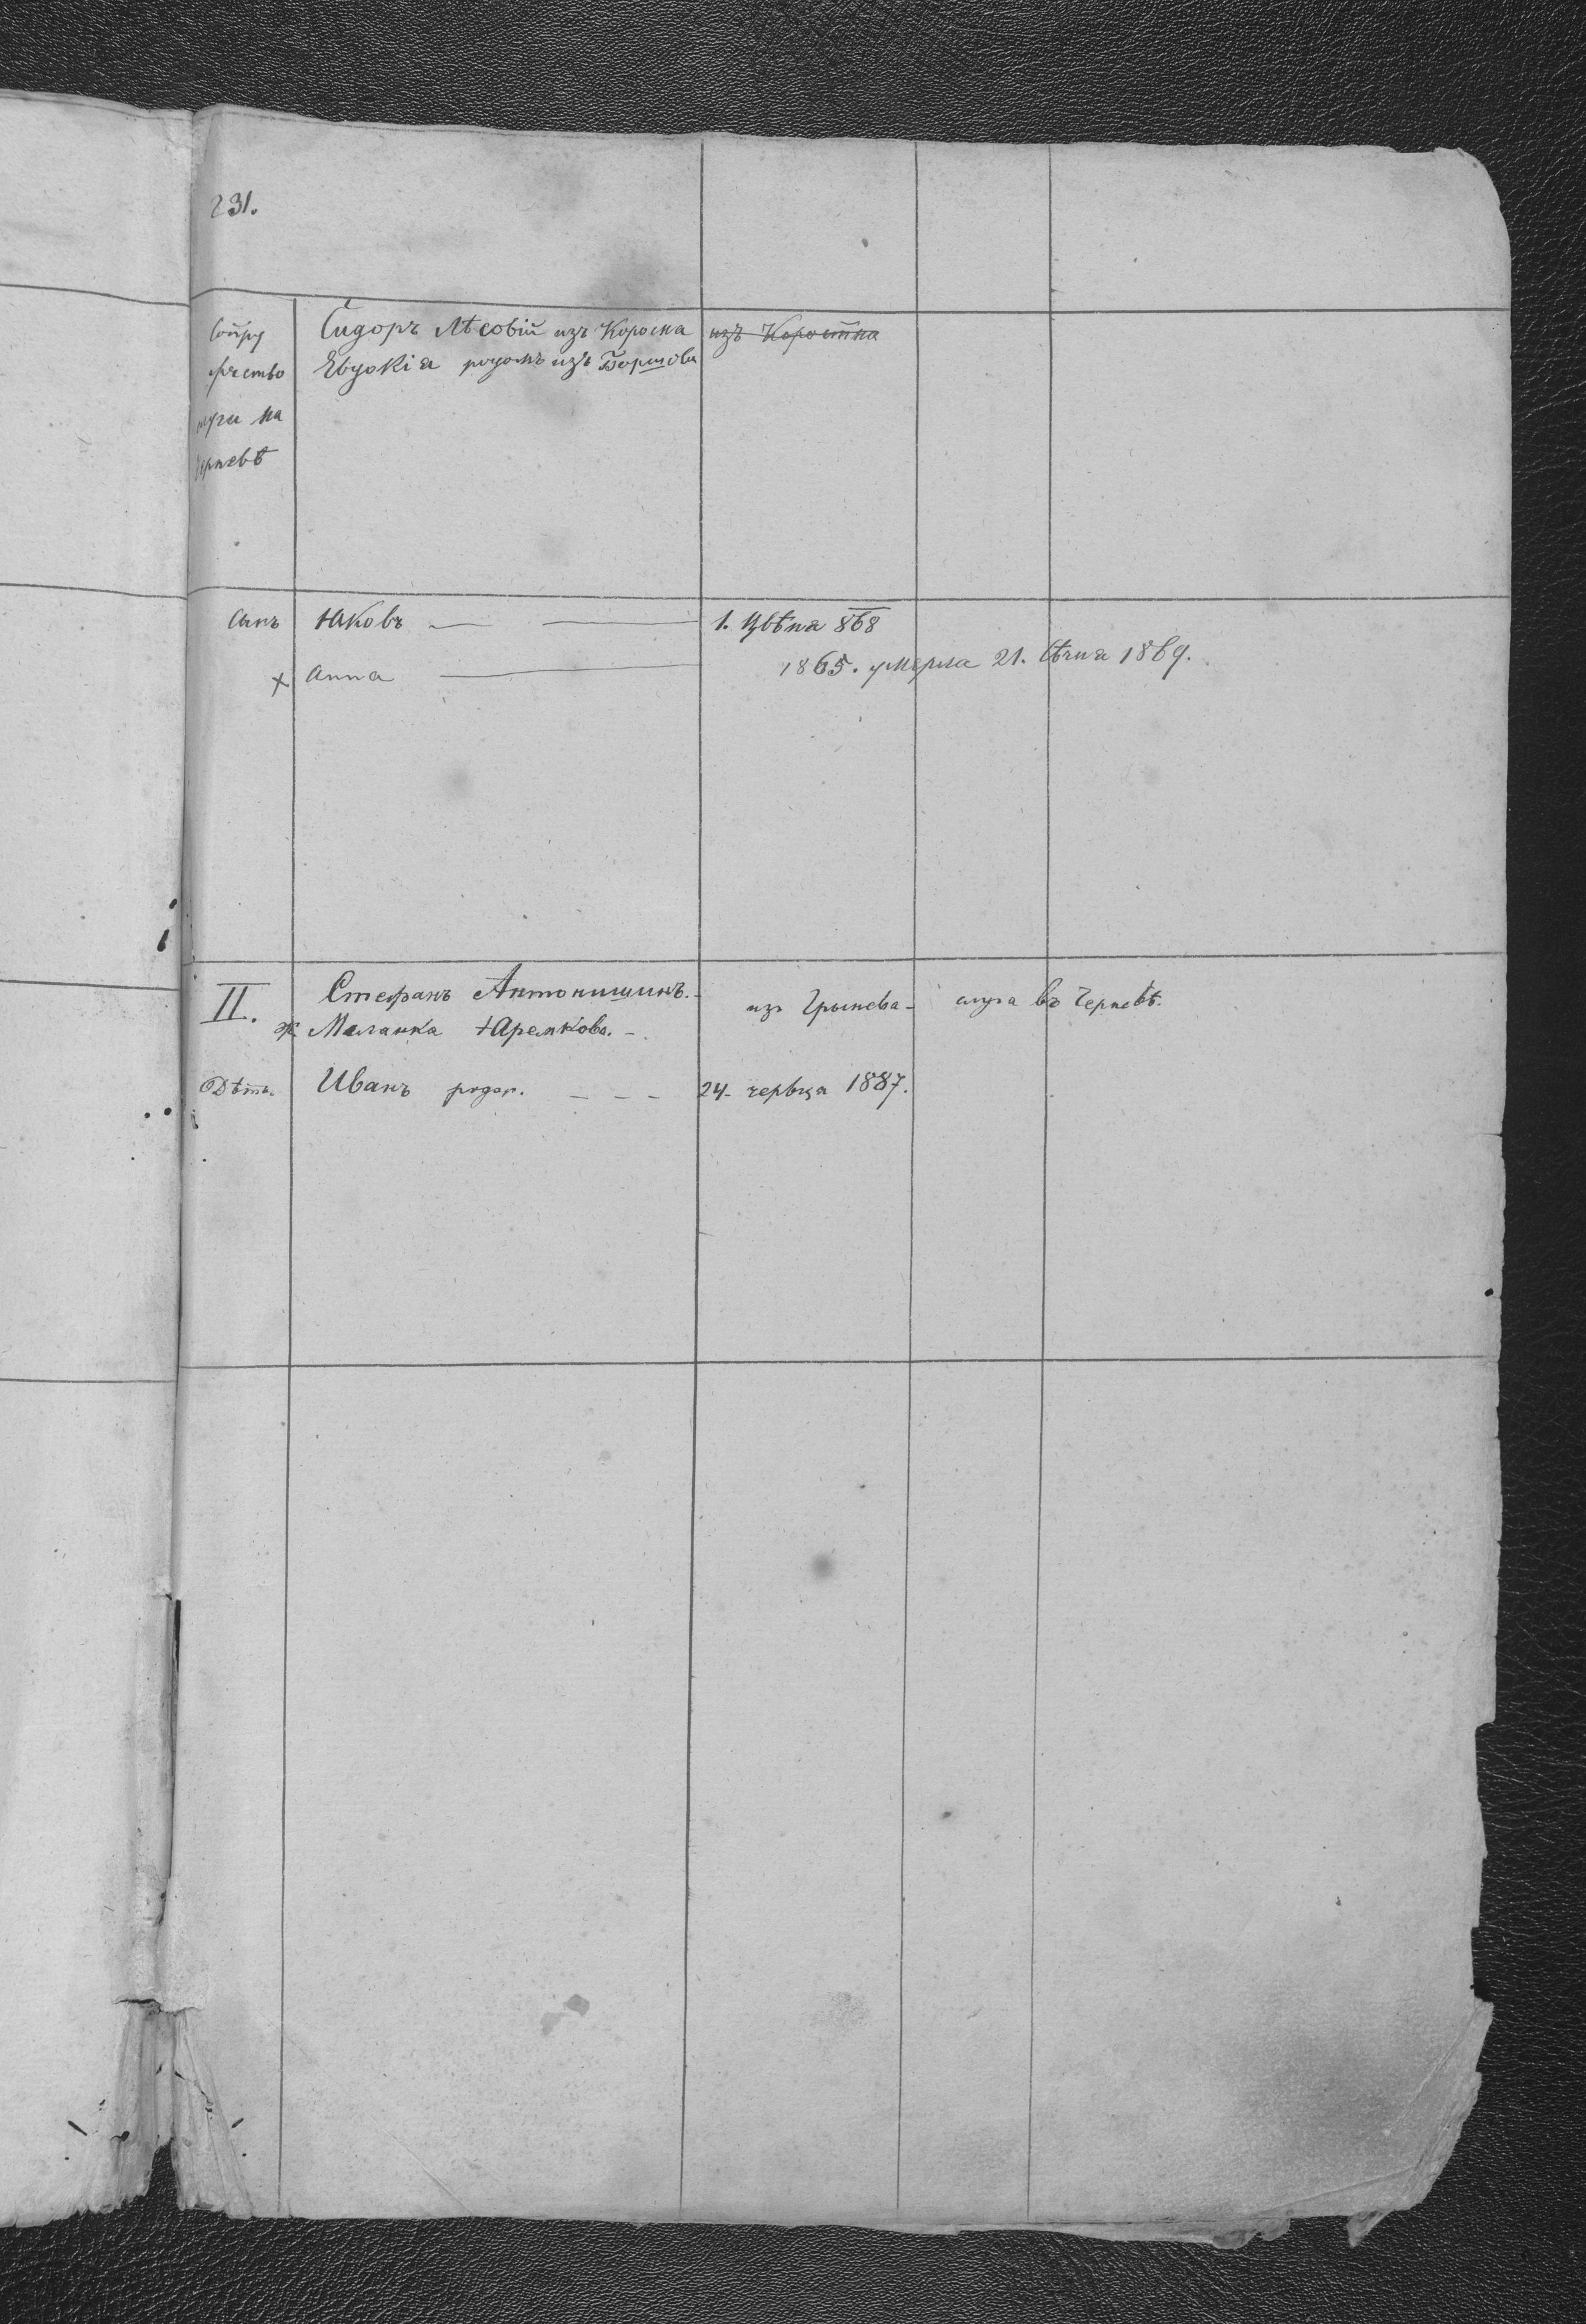 231.
Сопру Сидоръ Лѣсовій изъ Коросна ~~изъ Коростна~~
жество Евдокіа родомъ изъ Боршова
слуги на
Черневѣ
Сынъ Яковъ — — 1. Цвѣтня 868
× Анна — 1865. умерла 21. Сѣчня 1869.
II. Стефанъ Антонишинъ. - изъ Грынева - слуга въ Черневѣ.
ж. Маланка Яремкова. -
Дѣти. Иванъ родж. - - - 24 червця 1887.